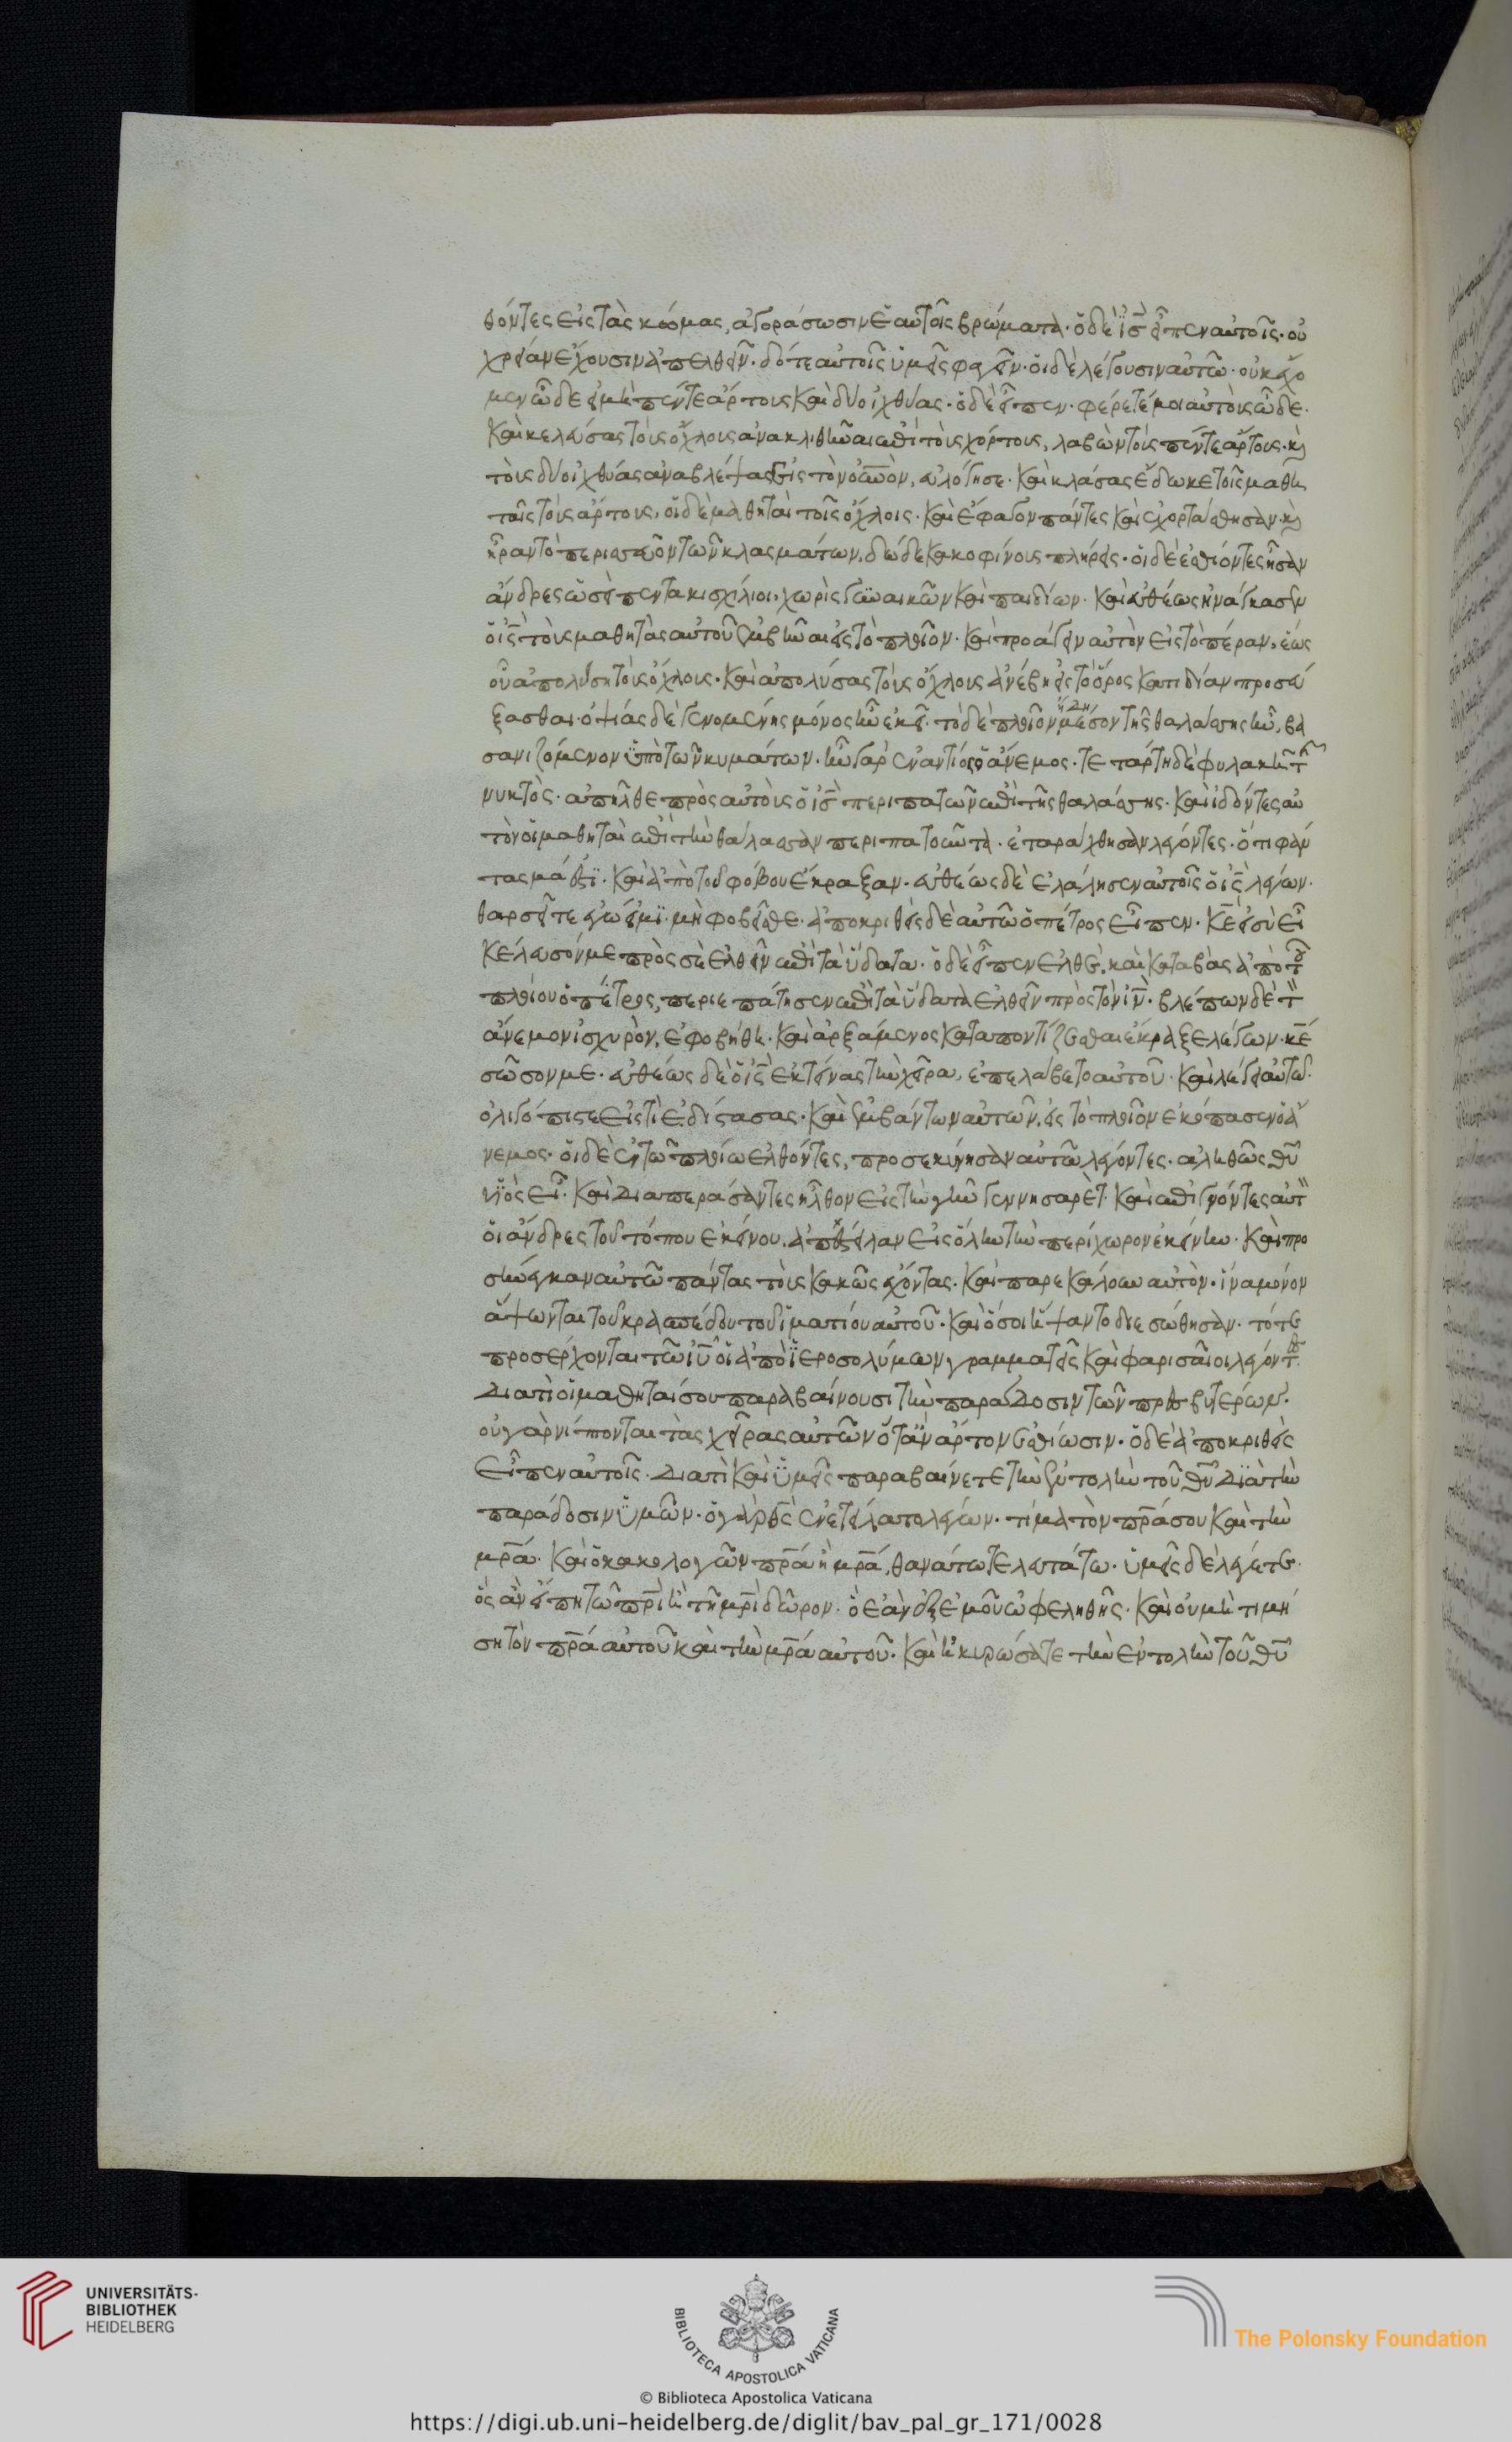 θόντες εἰς τὰς κώμας, ἀγοράσωσιν ἑαυτοῖς βρώματα· ὁ δὲ ις̅ εἶπεν αὐτοῖς· οὐ
χρείαν ἔχουσιν ἀπελθεῖν· δότε αὐτοῖς ὑμεῖς φαγεῖν· οἱ δὲ λέγουσιν αὐτῶ· οὐκ ἔχο
μεν ὧδε εἰ μὴ πέντε ἄρτους καὶ δύο ἰχθύας· ὁ δὲ εἶπεν· φέρετέ μοι αὐτοὺς ὧδε·
καὶ κελεύσας τοὺς ὄχλους ἀνακλιθῆναι ἐπὶ τοὺς χόρτους, λαβὼν τοὺς πέντε ἄρτους· κ(αὶ)
τοὺς δύο ἰχθύας ἀναβλέψας εἰς τὸν οὐ̅νὸν, εὐλόγησε· καὶ κλάσας ἔδωκε τοῖς μαθη
ταῖς τοὺς ἄρτους, οἱ δὲ μαθηταὶ τοῖς ὄχλοις· καὶ ἔφαγον πάντες καὶ ἐχορτάσθησαν· κ(αὶ)
ἦραν τὸ περισσεῦον τῶν κλασμάτων, δώδεκα κοφίνους πλήρεις· οἱ δὲ ἐσθίοντες ἦσαν
ἄνδρες ὡσεὶ πεντακισχίλιοι, χωρὶς γυναικῶν καὶ παιδίων· καὶ εὐθέως ἠνάγκασεν
ὁ ις̅ τοὺς μαθητὰς αὐτοῦ ἐμβῆναι εἰς τὸ πλοῖον· καὶ προάγειν αὐτὸν εἰς τὸ πέραν, ἕως
οὗ ἀπολύση τοὺς ὄχλους· καὶ ἀπολύσας τοὺς ὄχλους ἀνέβη εἰς τὸ ὄρος κατιδίαν προσεύ
ξασθαι· ὀψίας δὲ γενομένης μόνος ἦν ἐκεῖ· τὸ δὲ πλοῖον ἤδη μέσον τῆς θαλάσσης ἦν, βα
σανιζόμενον ὑπὸ τῶν κυμάτων· ἦν γὰρ ἐναντίος ὁ ἄνεμος· τετάρτη δὲ φυλακῆ τῆς
νυκτὸς· ἀπῆλθε πρὸς αὐτοὺς ὁ ις̅ περιπατῶν ἐπὶ τῆς θαλάσσης· καὶ ἰδόντες αὐ
τὸν οἱ μαθηταὶ ἐπὶ τὴν θάλασσαν περιπατοῦντα· ἐταράχθησαν λέγοντες· ὅτι φάν
τασμά ἐστι· καὶ ἀπὸ τοῦ φόβου ἔκραξαν· εὐθέως δὲ ἐλάλησεν αὐτοῖς ὁ ις̅ λέγων·
θαρσεῖτε ἐγώ εἰμι· μὴ φοβεῖσθε· ἀποκριθεὶς δὲ αὐτῶ ὁ πέτρος εἶπεν· κε̅ εἰ σὺ εἶ
κέλευσόν με πρὸς σὲ ἐλθεῖν ἐπὶ τὰ ὕδατα· ὁ δὲ εἶπεν ἐλθέ, καὶ καταβὰς ἀπὸ τοῦ
πλοίου ὁ πέτρος, περιεπάτησεν ἐπὶ τὰ ὕδατα ἐλθεῖν πρὸς τὸν ιν̅· βλέπων δὲ τὸν
ἄνεμον ἰσχυρὸν, ἐφοβήθη· καὶ ἀρξάμενος καταποντίζεσθαι ἔκραξε λέγων· κε̅
σῶσον με· εὐθέως δὲ ὁ ις̅ ἐκτείνας τὴν χεῖρα, ἐπελάβετο αὐτοῦ· καὶ λέγει αὐτῶ·
ὀλιγόπιστε εἰς τί ἐδίστασας· καὶ ἐμβάντων αὐτῶν, εἰς τὸ πλοῖον ἐκόπασεν ὁ ἄ
νεμος· οἱ δὲ ἐν τῶ πλοίω ἐλθόντες, προσεκύνησαν αὐτῶ λέγοντες· ἀληθῶς θυ̅
υἱὸς εἶ· καὶ διαπεράσαντες ἦλθον εἰς τὴν γῆν γεννησαρὲτ· καὶ ἐπιγνόντες αὐτὸν
οἱ ἄνδρες τοῦ τόπου ἐκείνου, ἀπέστειλαν εἰς ὅλην τὴν περίχωρον ἐκείνην· καὶ προ
σήνεγκαν αὐτῶ πάντας τοὺς κακῶς ἔχοντας· καὶ παρεκάλουν αὐτὸν· ἵνα μόνον
ἅψωνται τοῦ κρασπέδου τοῦ ἱματίου αὐτοῦ· καὶ ὅσοι ἥψαντο διεσώθησαν· τότε
προσέρχονται τῶ ιυ̅ οἱ ἀπὸ ἱεροσολύμων γραμματεῖς καὶ φαρισαῖοι λέγοντες·
διατὶ οἱ μαθηταί σου παραβαίνουσι τὴν παράδοσιν τῶν πρεσβυτέρων·
οὐ γὰρ νίπτονται τὰς χεῖρας αὐτῶν ὅταν ἄρτον ἐσθίωσιν· ὁ δὲ ἀποκριθεὶς
εἶπεν αὐτοῖς· διατὶ καὶ ὑμεῖς παραβαίνετε τὴν ἐντολὴν τοῦ θυ̅ διὰ τὴν
παράδοσιν ὑμῶν· ὁ γὰρ θς̅ ἐνετείλατο λέγων· τίμα τὸν πρ̅α σου καὶ τὴν
μρ̅α· καὶ ὁ κακολογῶν πρ̅α ἢ μρ̅α, θανάτω τελευτάτω· ὑμεῖς δὲ λέγετε·
ὃς ἂν εἴπη τῶ πρ̅ι ἢ τῆ μρ̅ι δῶρον· ὃ ἐὰν ἐξ ἐμοῦ ὠφεληθῆς· καὶ οὐ μὴ τιμή
ση τὸν πρ̅α αὐτοῦ καὶ τὴν μρ̅α αὐτοῦ· καὶ ἠκυρώσατε τὴν ἐντολὴν τοῦ θυ̅
UNIVERSITÄTS-
BIBLIOTHEK
HEIDELBERG
BIBLIOTECA APOSTOLICA VATICANA
© Biblioteca Apostolica Vaticana
The Polonsky Foundation
https://digi.ub.uni-heidelberg.de/diglit/bav_pal_gr_171/0028